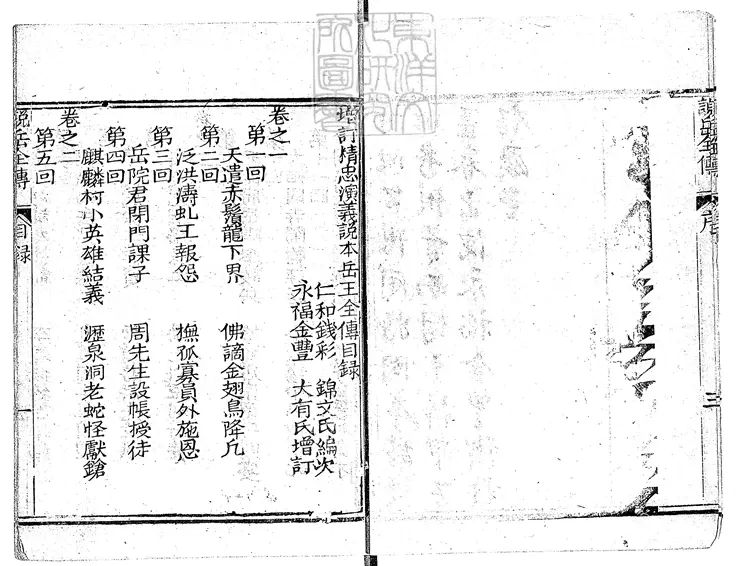 說岳全傳
序
三
增訂精忠演義說本岳王全傳目錄
仁和錢彩 錦文氏編次
永福金豐 大有氏增訂
卷之一
第一回
天遣赤鬚龍下界 佛謫金翅鳥降凡
第二回
泛洪濤虬王報怨 撫孤寡員外施恩
第三回
岳院君閉門課子 周先生設帳授徒
第四回
麒麟村小英雄結義 瀝泉洞老蛇怪獻鎗
卷之二
第五回
說岳全傳
目錄
一